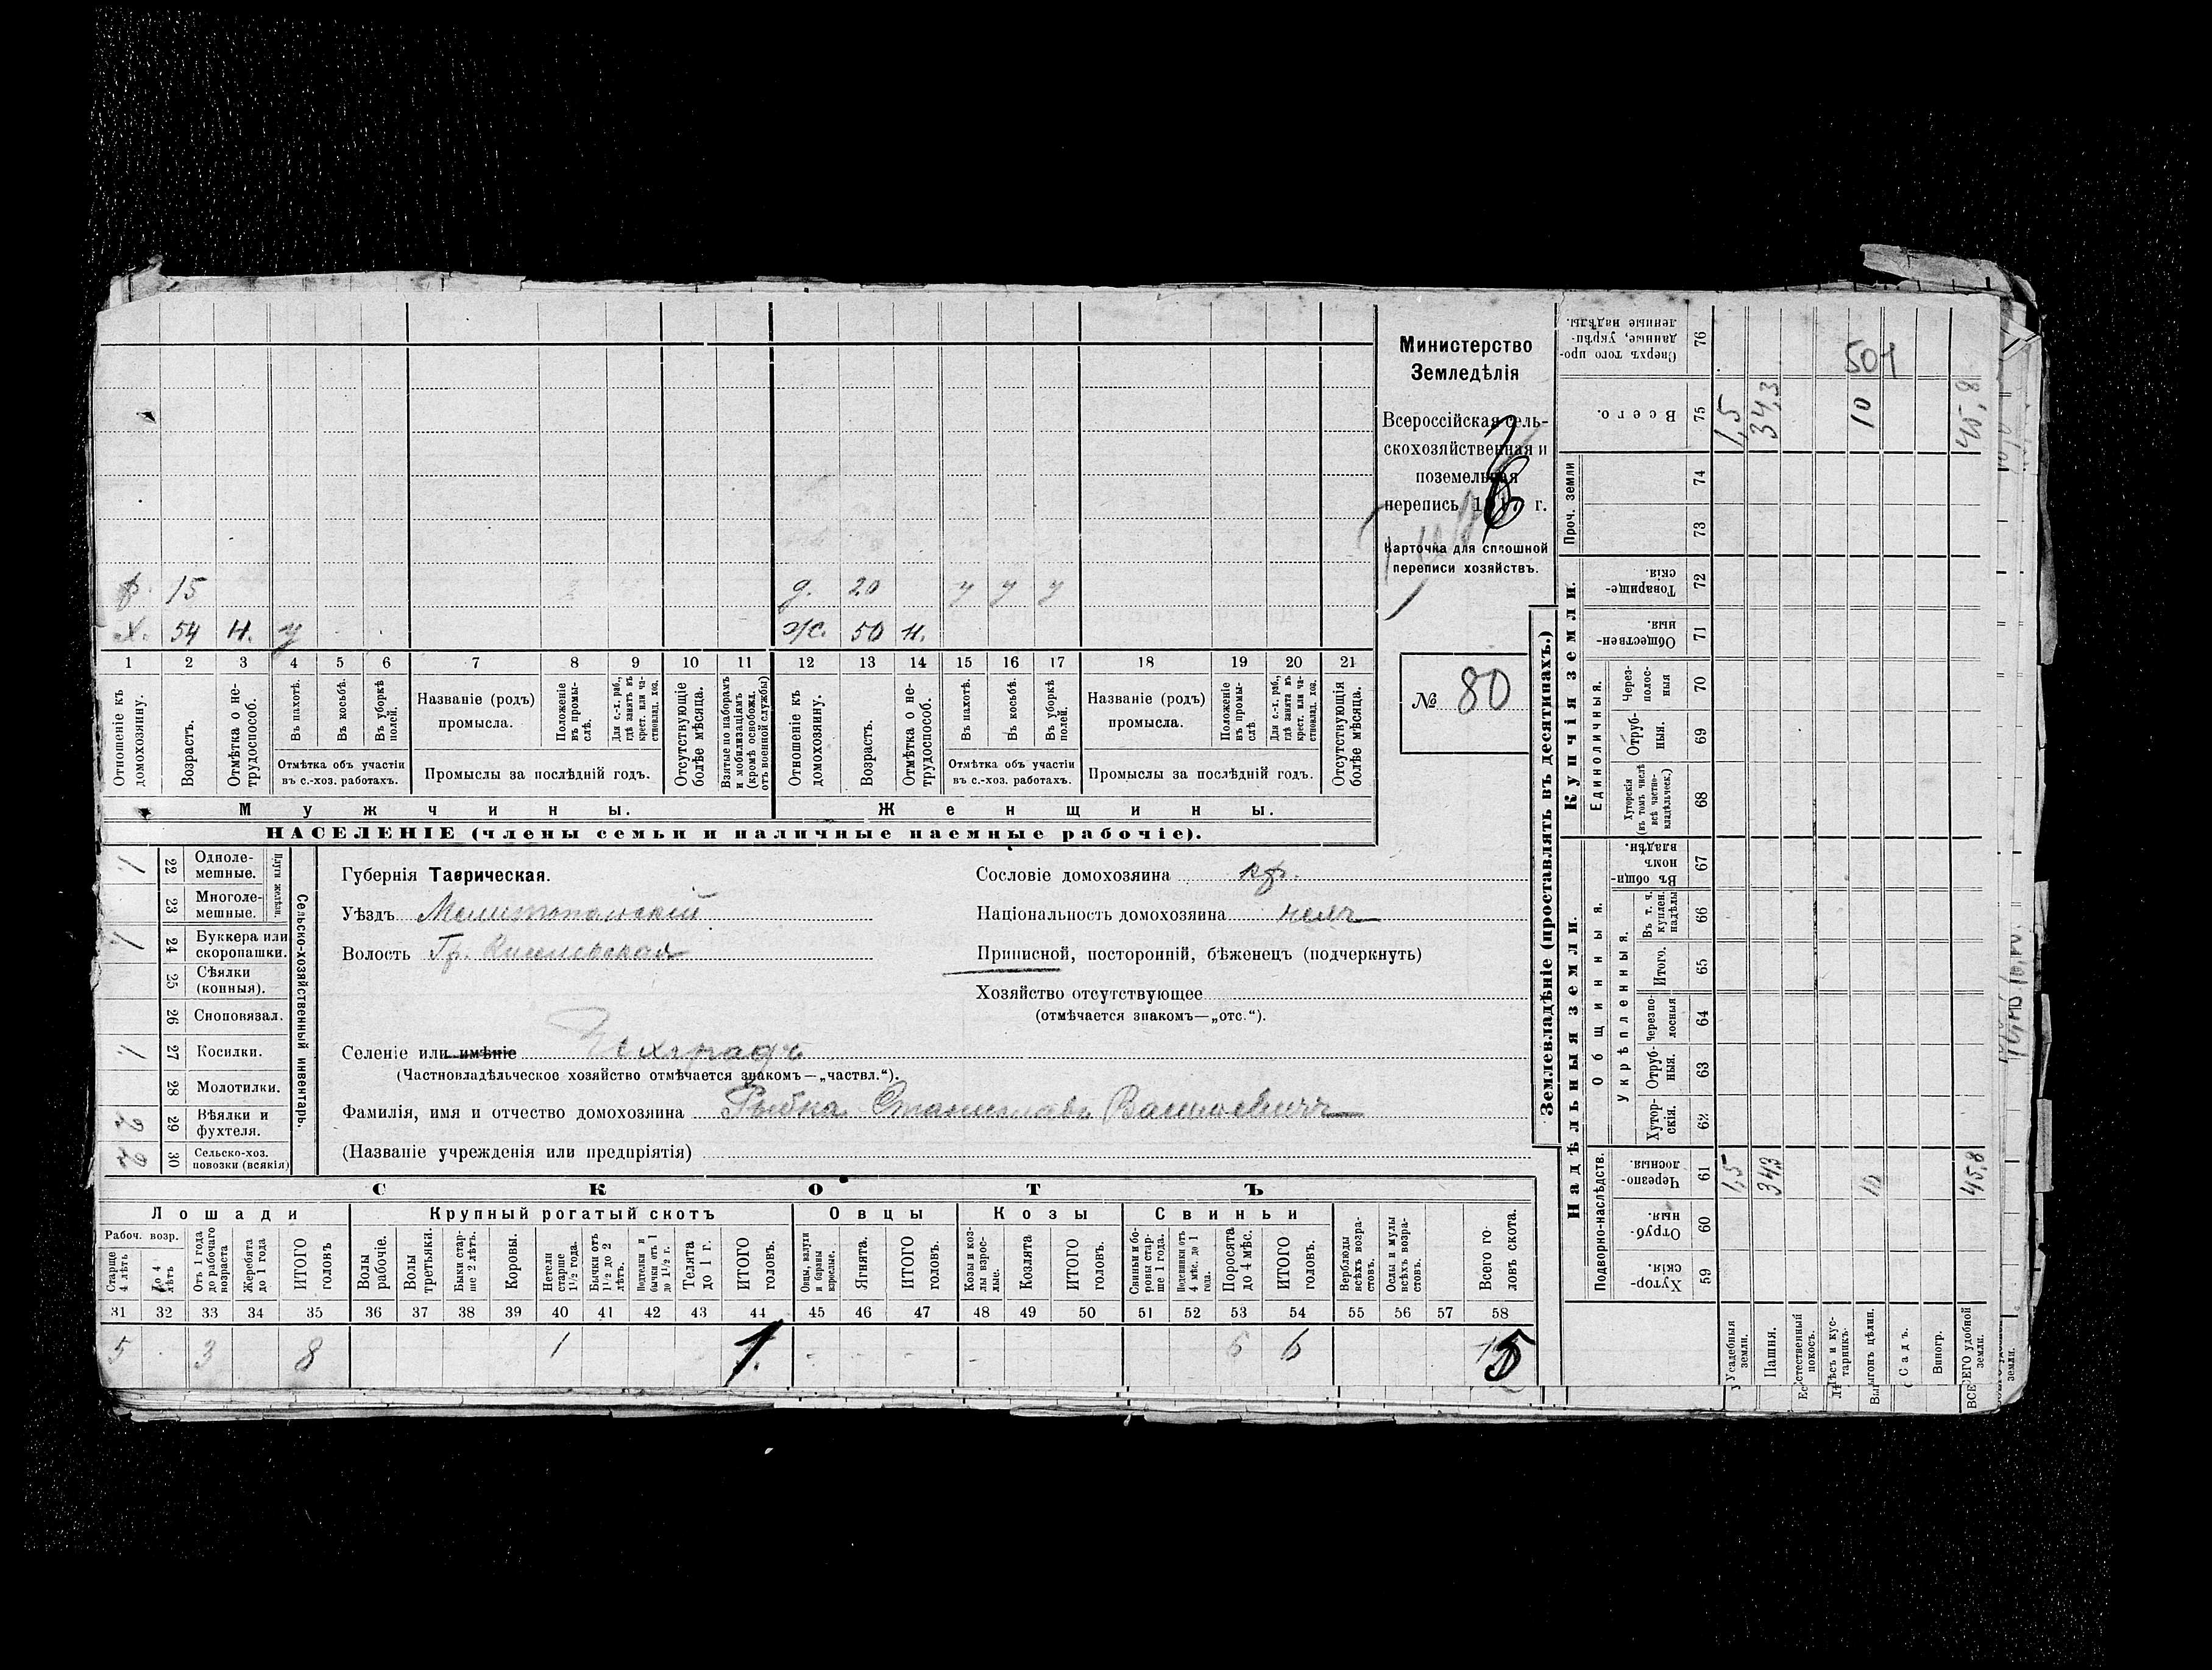 Министерство
Земледѣлія
Всероссійская сель-
скохозяйственная и
поземельная
перепись 191 г.
Карточка для сплошной
переписи хозяйствъ.
№ 80
р. 15
д. 20 у у у
Х. 54 Н. у
ж. 50 н.
1 2 3 4 5 6 7 8 9 10 11 12 13 14 15 16 17 18 19 20 21
Отношеніе къ домохозяину.
Возрастъ.
Отмѣтка о не-трудоспособ.
Въ пахотѣ.
Въ косьбѣ.
Въ уборкѣ полей.
Отмѣтка объ участіи въ с.-хоз. работахъ.
Названіе (родъ) промысла.
Положеніе въ промы-слѣ.
Для с.-х. раб., гдѣ занятъ въ крест. или ча-стновлад. хоз.
Промыслы за послѣдній годъ.
Отсутствующіе болѣе мѣсяца.
Взятые по наборамъ и мобилизаціямъ (кромѣ освобожд. отъ военной службы)
Отношеніе къ домохозяину.
Возрастъ.
Отмѣтка о не-трудоспособ.
Въ пахотѣ.
Въ косьбѣ.
Въ уборкѣ полей.
Отмѣтка объ участіи въ с.-хоз. работахъ.
Названіе (родъ) промысла.
Положеніе въ промы-слѣ
Для с.-х. раб., гдѣ занята въ крест. или ча-стновлад. хоз.
Промыслы за послѣдній годъ.
Отсутствующія болѣе мѣсяца.
Мужчины.
Женщины.
НАСЕЛЕНІЕ (члены семьи и наличные наемные рабочіе).
Сельско-хозяйственный инвентарь.
Плуги желѣзн.
1 22 Одноле-мешные.
23 Многоле-мешные.
1 24 Буккера или скоропашки.
25 Сѣялки (конныя).
26 Сноповязал.
1 27 Косилки.
28 Молотилки.
2 29 Вѣялки и фухтеля.
2 30 Сельско-хоз. повозки (всякія)
Губернія Таврическая.
Уѣздъ Мелитопольскій
Волость Гр. Киселевская
Селеніе или имѣніе
(Частновладѣльческое хозяйство отмѣчается знакомъ—„частвл.“).
Фамилія, имя и отчество домохозяина Рыбка Станиславъ Васильевичъ
(Названіе учрежденія или предпріятія)
Сословіе домохозяина кр.
Національность домохозяина
Приписной, посторонній, бѣженецъ (подчеркнуть)
Хозяйство отсутствующее
(отмѣчается знакомъ—„отс.“).
СКОТЪ
Лошади Крупный рогатый скотъ Овцы Козы Свиньи
Рабоч. возр.
Старше 4 лѣтъ
До 4 лѣтъ
Отъ 1 года до рабочаго возраста
Жеребята до 1 года
ИТОГО головъ
Волы рабочіе.
Волы третьяки.
Быки стар-ше 2 лѣтъ.
Коровы.
Нетели старше 1½ года.
Бычки отъ 1½ до 2 лѣтъ.
Подтелки и бычки отъ 1 до 1½ г.
Телята до 1 г.
ИТОГО головъ.
Овцы, валухи и бараны взрослые.
Ягнята.
ИТОГО головъ.
Козы и коз-лы взрос-лые.
Козлята
ИТОГО головъ.
Свиньи и бо-ровы стар-ше 1 года.
Подсвинки отъ 4 мѣс. до 1 года.
Поросята до 4 мѣс.
ИТОГО головъ.
Верблюды всѣхъ возра-стовъ.
Ослы и мулы всѣхъ возра-стовъ.
Всего го-ловъ скота.
31 32 33 34 35 36 37 38 39 40 41 42 43 44 45 46 47 48 49 50 51 52 53 54 55 56 57 58
5 3 8 1 1. 6 6 15
Землевладѣніе (проставлять въ десятинахъ.)
Надѣльныя земли. Купчія земли.
Подворно-наслѣдств.
Общинныя.
Укрѣпленныя.
Единоличныя.
Проч. земли
59 Хутор-скія.
60 Отруб-ныя.
61 Черезпо-лосныя.
62 Хутор-скія.
63 Отруб-ныя.
64 Черезпо-лосныя
65 Итого.
66 Въ т. ч. куплен. надѣлы
67 Въ общи-номъ владѣн.
68 Хуторскія (въ томъ числѣ всѣ частно-владѣльческ.)
69 Отруб-ныя.
70 Через-полос-ныя
71 Обществен-ныя.
72 Товарище-скія.
73
74
75 Всего.
76 Сверхъ того про-данные, укрѣп-ленные надѣлы.
501
Усадебныя земли. 1,5 1,5
Пашня. 34,3 34,3
Естественный покосъ.
Лѣсъ и кус-тарникъ.
Выгонъ цѣлин. 10 10
Садъ.
Виногр.
ВСЕГО удобной земли. 45,8 45,8